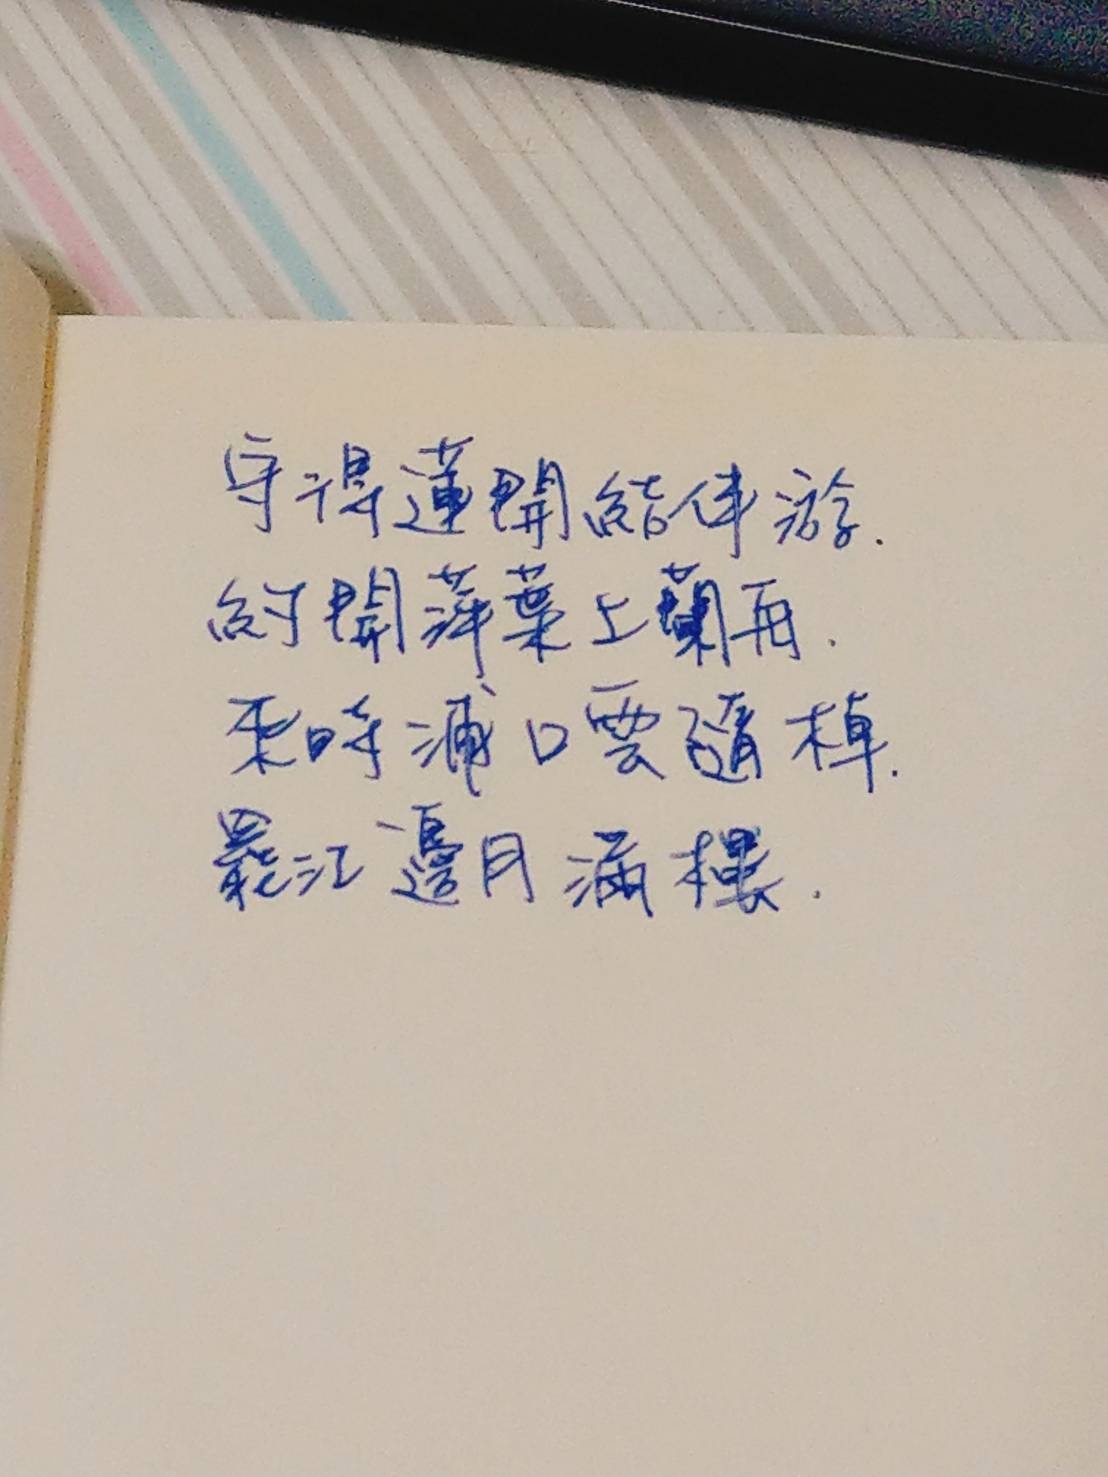 守得蓮開結伴游.
約開萍葉上蘭舟.
來時浦口雲隨棹.
罷江邊月滿樓.